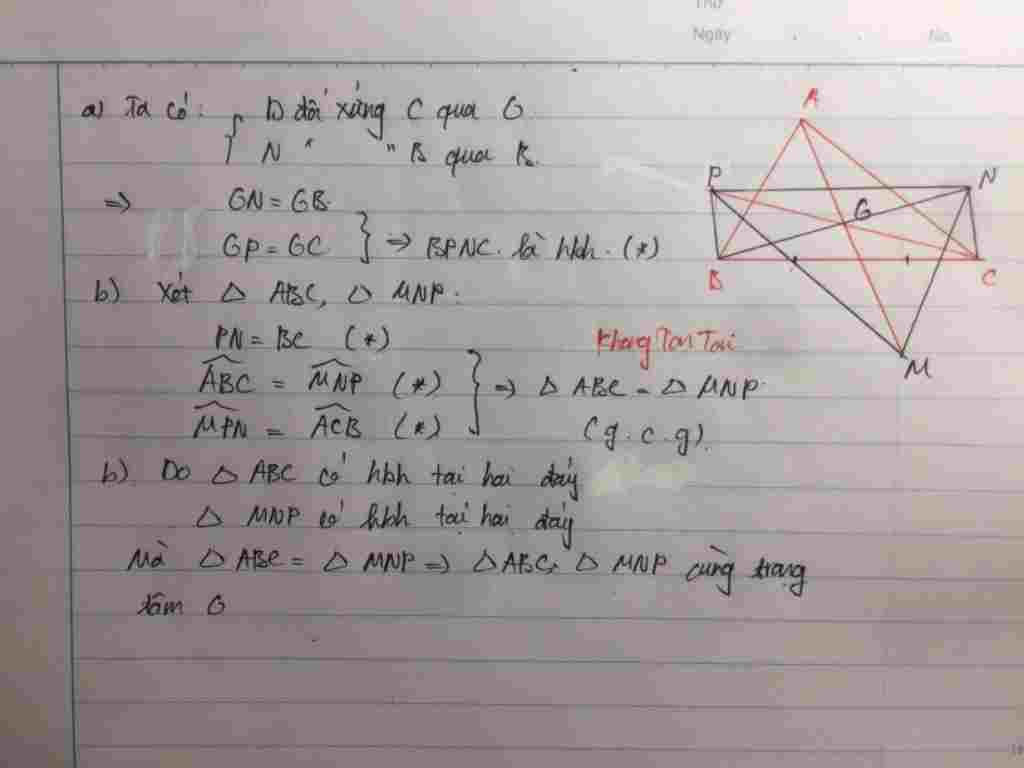 Thứ
Ngày . . No.
a) Ta có: { D đối xứng C qua G
N " " B qua B.
=> GN = GB
GP = GC } => BPNC là hbh. (*)
b) Xét △ ABC, △ MNP.
PN = BC (*)
ABC = MNP (*) } => △ ABC = △ MNP
MPN = ACB (*) (g.c.g).
b) Do △ ABC có hbh tại hai đáy
△ MNP có hbh tại hai đáy
Mà △ ABC = △ MNP => △ABC, △ MNP cùng trọng
tâm G
Khong Ton Tai
A
P
N
G
B
C
M